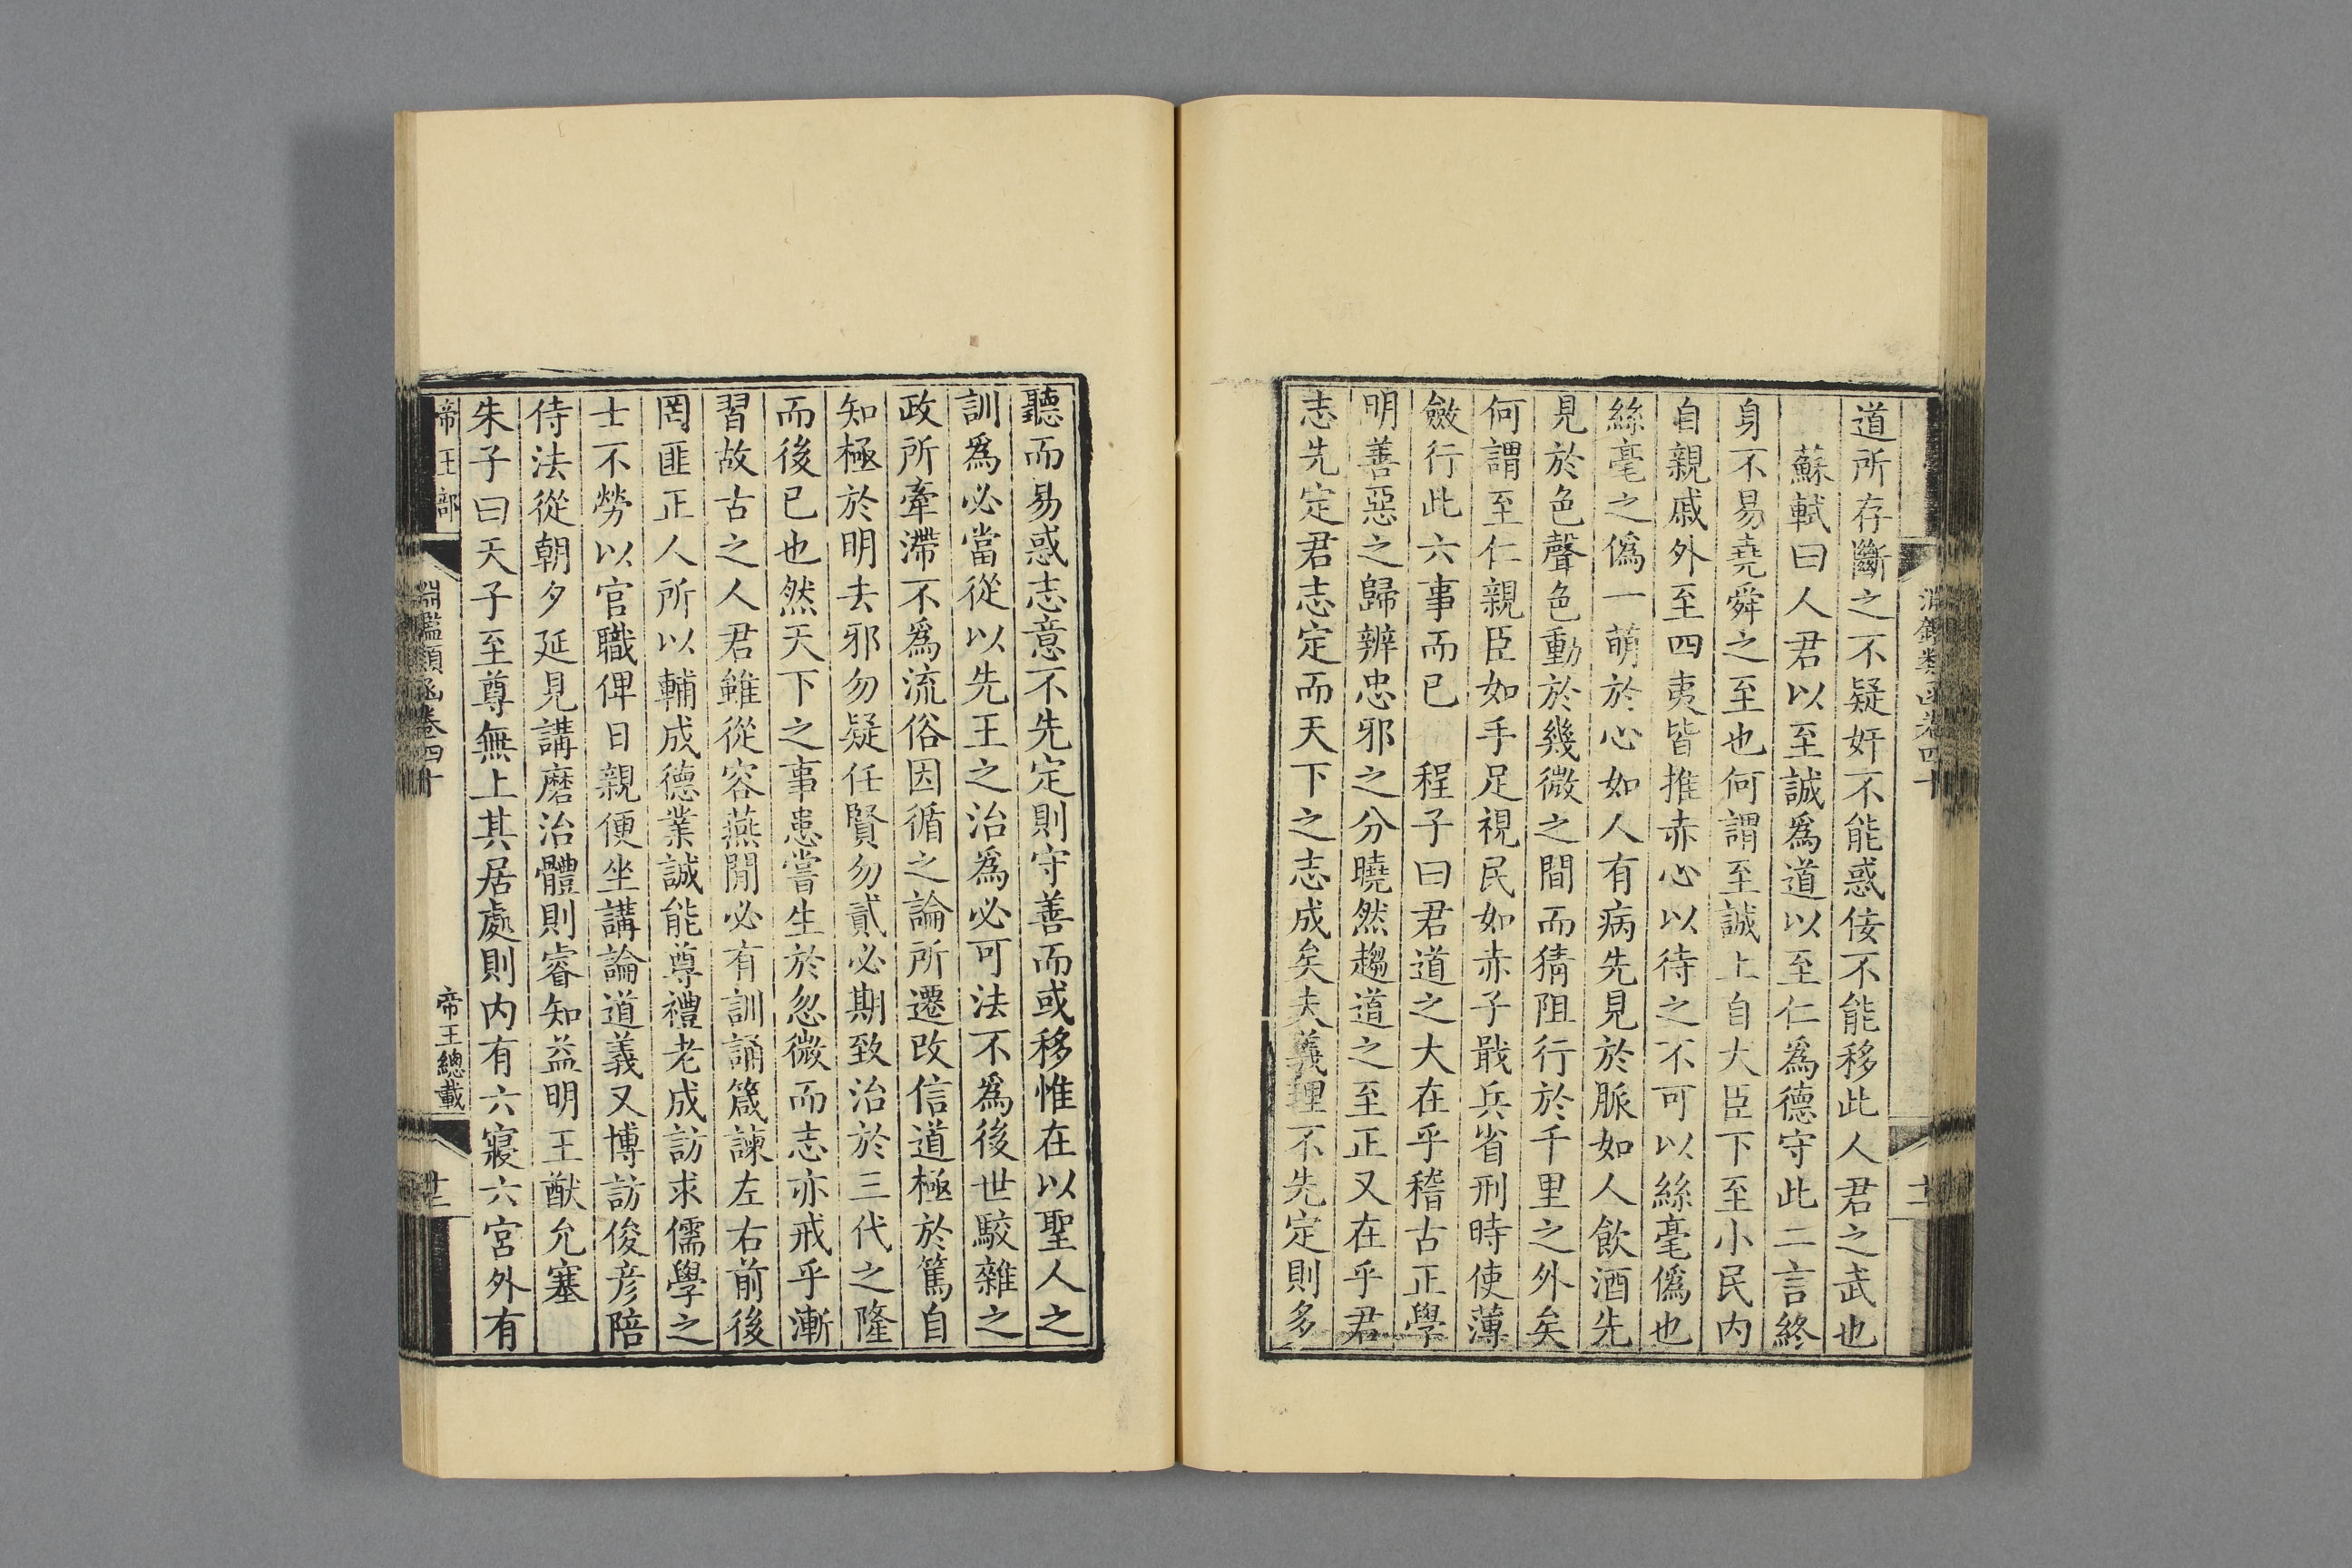 道所存斷之不疑奸不能惑佞不能移此人君之武也
蘇軾曰人君以至誠爲道以至仁爲德守此二言終
身不易堯舜之至也何謂至誠上自大臣下至小民内
自親戚外至四夷皆推赤心以待之不可以絲毫僞也
絲毫之僞一萌於心如人有病先見於脈如人飲酒先
見於色聲色動於幾微之間而猜阻行於千里之外矣
何謂至仁親臣如手足視民如赤子戢兵省刑時使薄
斂行此六事而已 程子曰君道之大在乎稽古正學
明善惡之歸辨忠邪之分曉然趨道之至正又在乎君
志先定君志定而天下之志成矣夫義理不先定則多
聽而易惑志意不先定則守善而或移惟在以聖人之
訓爲必當從以先王之治爲必可法不爲後世駁雜之
政所牽滯不爲流俗因循之論所遷改信道極於篤自
知極於明去邪勿疑任賢勿貳必期致治於三代之隆
而後已也然天下之事患嘗生於忽微而志亦戒乎漸
習故古之人君雖從容燕閒必有訓誦箴諫左右前後
罔匪正人所以輔成德業誠能尊禮老成訪求儒學之
士不勞以官職俾日親便坐講論道義又博訪俊彥陪
侍法從朝夕延見講磨治體則睿知益明王猷允塞
朱子曰天子至尊無上其居處則内有六寢六宮外有
帝王部 淵鑑類函卷四十 帝王總載